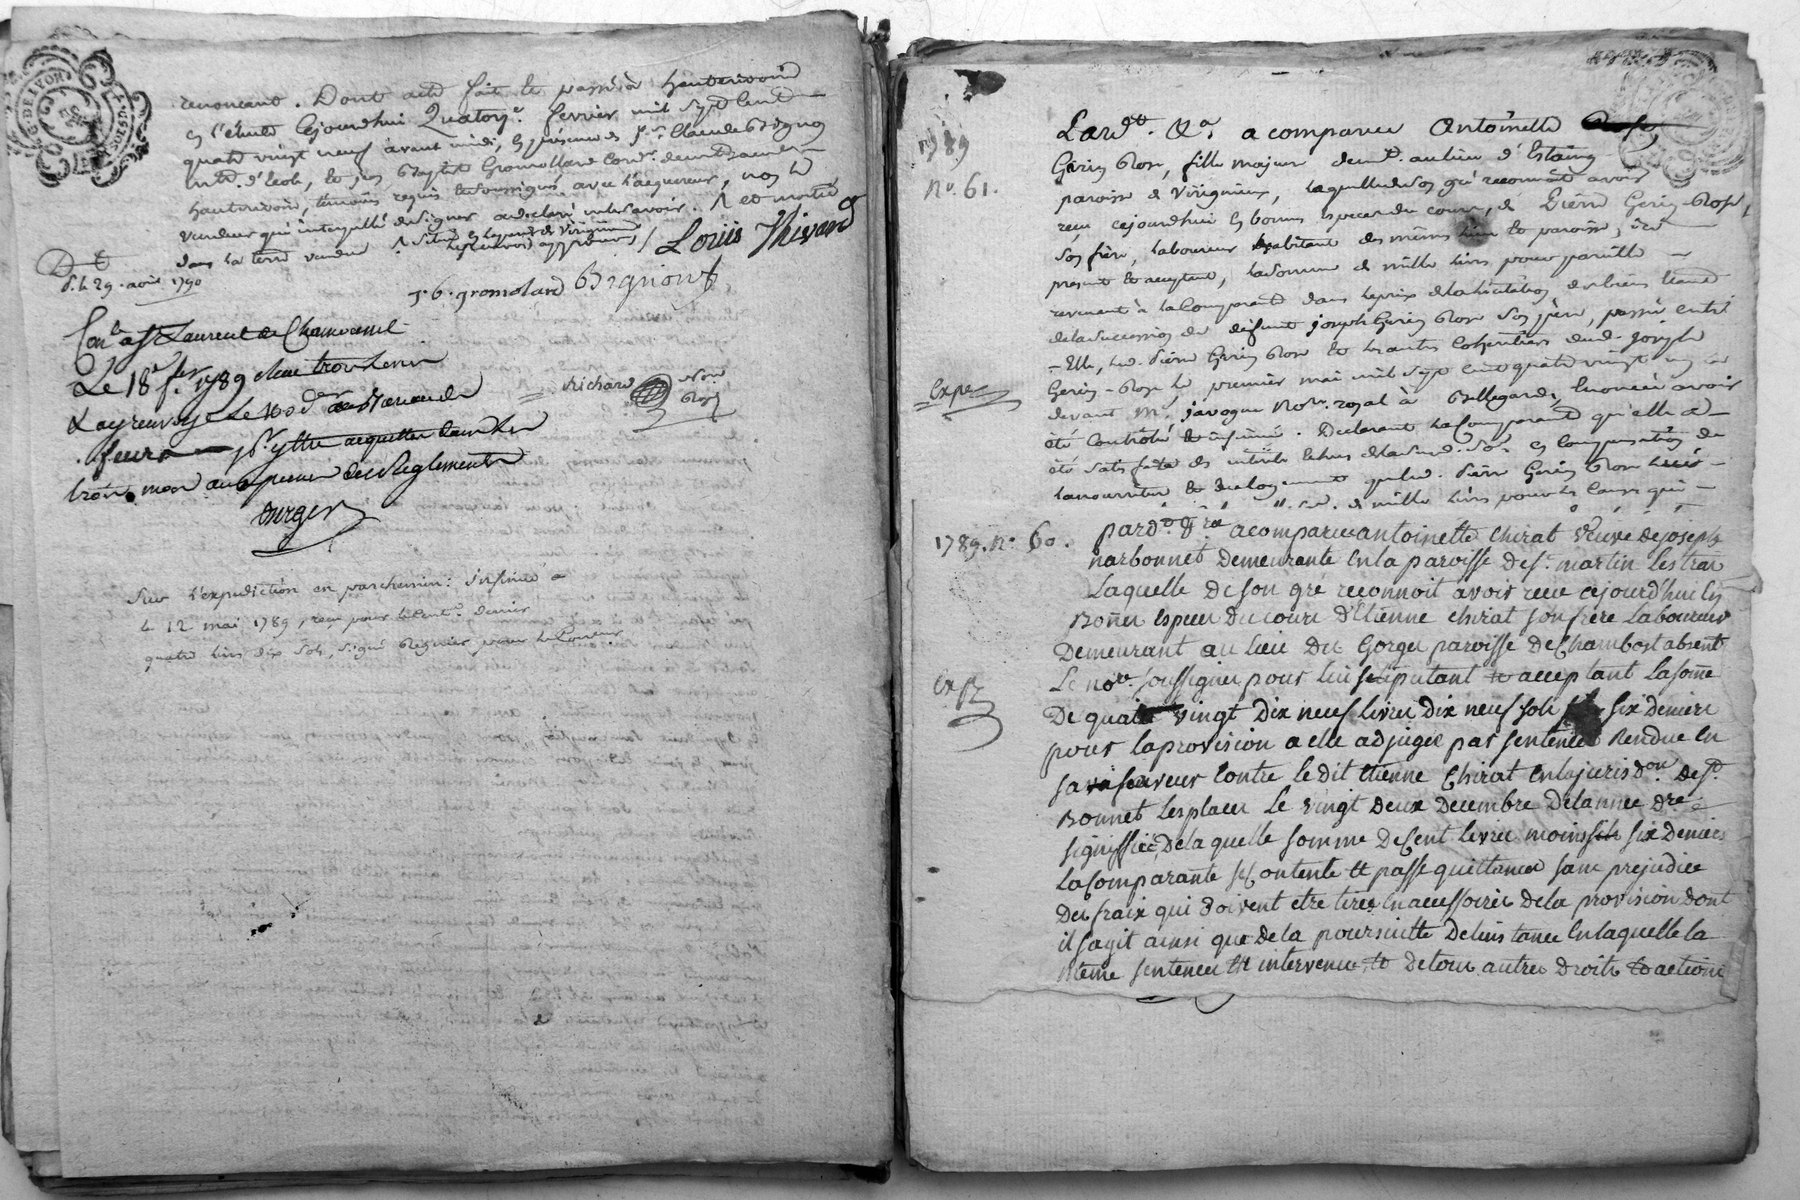 G. DE LYON
renoncant. Dont acte fait et passé à hauterivoire
en l'étude cejourd'hui Quatorze fevrier mil sept cent
quatre vingt neuf avant midi, en présence de Sr. Claude Bignon
md. d'ecole, et jean Baptiste Gromollard cordr. demt. aud.
hauterivoire, témoins requis et soussignés avec l'acquereur, non le
vendeur qui interpellé de signer a déclaré ne le savoir.
dans la terre vendue
renvoi approuvé
Louis Thivard
D. t.
d. L 29. aoit 1790
j. b. gromolard Bignon
Conlé a St Laurent de Chamousset
Le 18e fer 1789
Richard Nore Royal
Le 10 d
feurs
acquitter dans les
trois mois aux peines des Reglements
Durger
Sur l'expediction en parchemin: insinué a
L 12 mai 1789, reçu pour le cent. denier
quatre livres dix sols, signé Regnier pour
1789
No. 61.
Pardt. &a. a comparue Antoinette Rose
Gerin Rose, fille majeure demte. au lieu d'Estaing
paroisse de Virigneux, laquelle de son gré reconnoit avoir
reçu cejourd'hui en bonnes especes du cours, de Pierre Gerin-Rose,
son frère, laboureur habitant des mêmes lieu et paroisse, ici
présent et acceptant, la somme de mille livres pour pareille
revenant à la Comparante dans le prix de la licitation des biens
de la succession de défunt joseph Gerin Rose son père, passée entre
Elle, led. Pierre Gerin Rose et les autres Cohéritiers dud. joseph
Gerin-Rose le premier mai mil sept cent quatre vingt
devant Me. javogue Nore. royal à Bellegarde, énoncée avoir
été Controlé et insinué. Déclarant la Comparante qu'elle a
été satisfaite des intérêts de lad. so. en compensation de
la nourriture et du logement que led. Pierre Gerin Rose
de mille livres pour les causes que
Expé
1789. No. 60.
pardt. &ra. a comparue antoinette Chirat Veuve de joseph
narbonnet demeurante en la paroisse de St. martin Lestrat
Laquelle de son gré reconnoit avoir reçu cejourd'hui En
Bonnes especes du cours d'Etienne Chirat son frere Laboureur
Demeurant au lieu du Gorgeu paroisse de Chambost absent
Le nore. soussigné pour lui stipulant et acceptant La somme
De quatre vingt Dix neuf livres Dix neuf sols six deniers
pour la provision a elle adjugée par sentence Rendue en
sa faveur contre le dit Etienne Chirat en la jurisdon. de St.
Bonnet Lesplaces Le vingt deux Decembre De l'année dre
signiffiée, De la quelle somme De Cent Livres moins six Deniers
La Comparante se contente et passe quittance sans prejudice
Des fraix qui doivent etre tirés en accessoires De la provision dont
il s'agit ainsi que de la poursuitte De l'instance En laquelle la
même sentence est intervenue, et De tous autres droits et actions
Expé